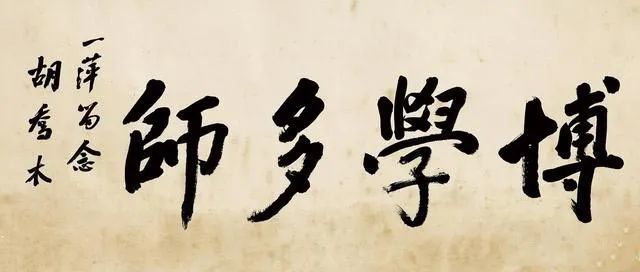 博學多師
一萍留念
胡喬木